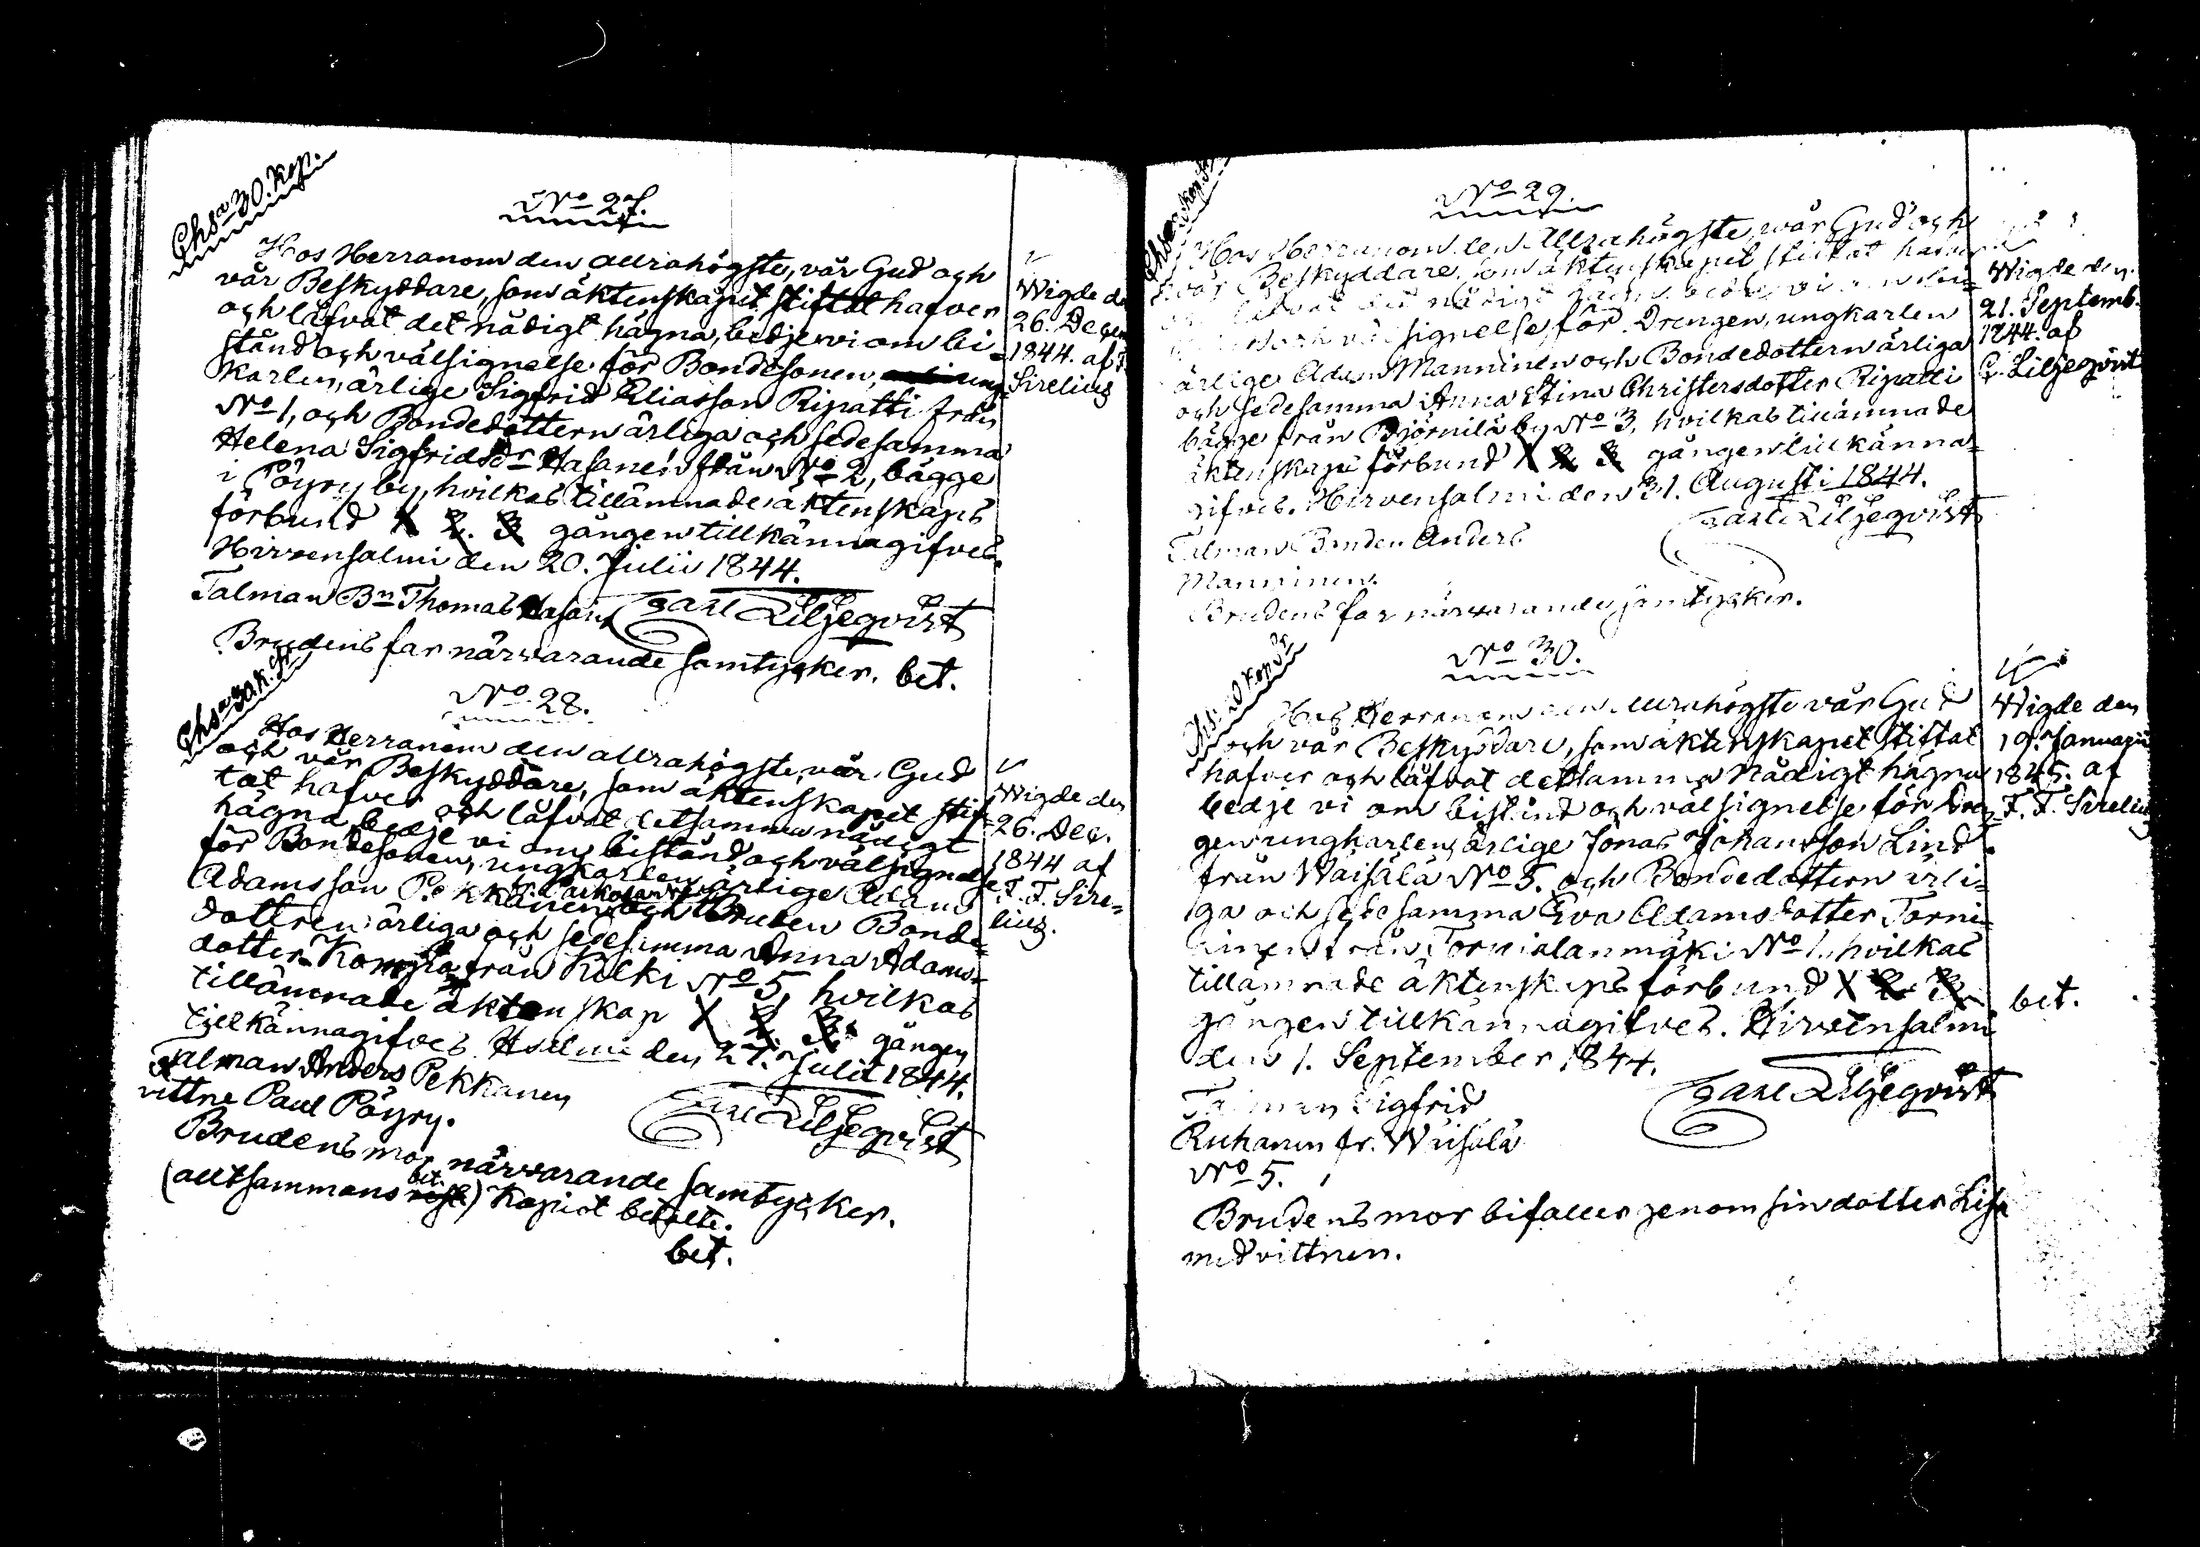 Chsa 30. Kop.
No 27.
Hos Herranom den allrahögste, vår Gud och
vår Beskyddare, som äktenskapet stiftat hafver
och låfvat det nådigt hägna, bedje vi om bi-
stånd och välsignelse för Bondesonen, ung-
karlen, ärlige Sigfrid Eliasson Ripatti från
No 1, och Bondedottern ärliga och sedesamma
Helena Sigfridsdr Hasanen från No 2, bägge
i Pöyry by, hvilkas tillämnade äktenskaps
förbund 1 2. 3 gången tillkännagifves.
Hirvensalmi den 20. Julii 1844.
Talman Bn Thomas Hasan
Carl Liljeqvist
Brudens far närvarande samtycker. bet.
Wigde de
26. Decem
1844. af F
Sirelius
Chsa 30 k. Sr
No 28.
Hos Herranom den allrahögste, vår Gud
och vår Beskyddare, som äktenskapet stif-
tat hafver och låfvat detsamma nådigt
hägna, bedje vi om bistånd och välsignelse
för Bondesonen, ungkarlen, ärlige Adam
Adamsson Pekkanen och Bruden Bonde-
dottren ärliga och sedesamma Anna Adams-
dotter Kompia från Kilki No 5 hvilkas
tillämnade äktenskap 1 2 3. gången
tillkännagifves. Hsalmi den 27. Julii 1844.
Talman Anders Pekkanen
vittne Paul Pöyry.
Carl Liljeqvist
Brudens mor närvarande samtycker.
(alltsammans bet.) Kapiot betalte.
bet.
Wigde den
26. Dec.
1844 af
F. F. Sire-
lius.
No 29.
Hos Herranom den Allrahögste, vår Gud och
vår Beskyddare, som äktenskapet stiftat hafver
och låfvat det nådigt hägna, bedje vi om bi-
stånd och välsignelse för Drengen, ungkarlen
ärlige Adam Manninen och Bondedottern ärliga
och sedesamma Anna Stina Christersdotter Ripatti
bägge från Björnilä by No 3, hvilkas tillämnade
äktenskaps förbund 1 2 3 gången tillkänna-
gifves. Hirvensalmi den 31. Augusti 1844.
Carl Liljeqvist
Talman Bonden Anders
Manninen.
Brudens far närvarande samtycker.
Wigde den
21. Septemb.
1844. af
C. Liljeqvist
No 30.
Hos Herranom den allrahögste vår Gud
och vår Beskyddare, som äktenskapet stiftat
hafver och låfvat detsamma nådigt hägna
bedje vi om bistånd och välsignelse för Dren-
gen ungkarlen, ärlige Jonas Johansson Lind
från Waisälä No 5. och Bondedottern ärli-
ga och sedesamma Eva Adamsdotter Torni-
ainen från Tornialanmäki No 1., hvilkas
tillämnade äktenskaps förbund 1 2. 3.
gången tillkännagifves. Hirvensalmi
den 1. September 1844.
Carl Liljeqvist
Talman Sigfrid
Ruhanen fr. Waisälä
No 5.
Brudens mor bifaller genom sin dotter Lisa
med vittnen.
Wigde den
19. Januarii
1845. af
F. F. Sirelius
bet.